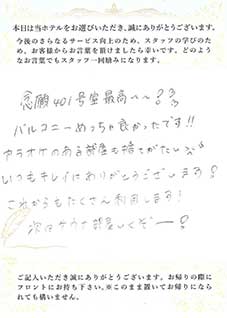 本日は当ホテルをお選びいただき、誠にありがとうございます。
今後のさらなるサービス向上のため、スタッフの学びのた
め、お客様からお言葉を頂けましたら幸いです。どのよう
なお言葉でもスタッフ一同励みになります。
念願401号室最高〜〜!?
バルコニーめっちゃ良かったです!!
カラオケのある部屋も捨てがたい
いつもキレイにありがとうございます!
これからもたくさん利用します!
次はサウナ部屋しくぞー!
ご記入いただき誠にありがとうございます。お帰りの際に
フロントにお持ち下さい。※このまま置いてお帰りになら
れても構いません。